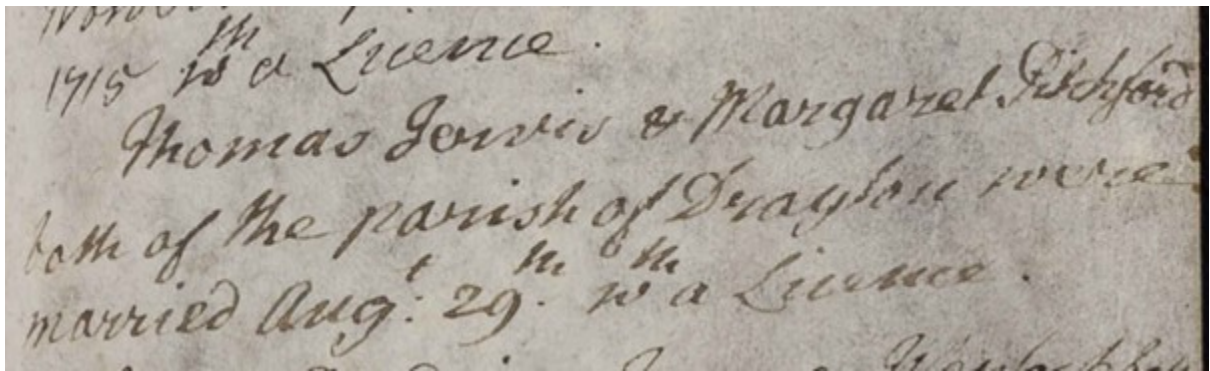 1715 wth a Licence.
Thomas Jervis & Margaret Pitchford
both of the parish of Drayton were
married Augt: 29th. wth a Licence.